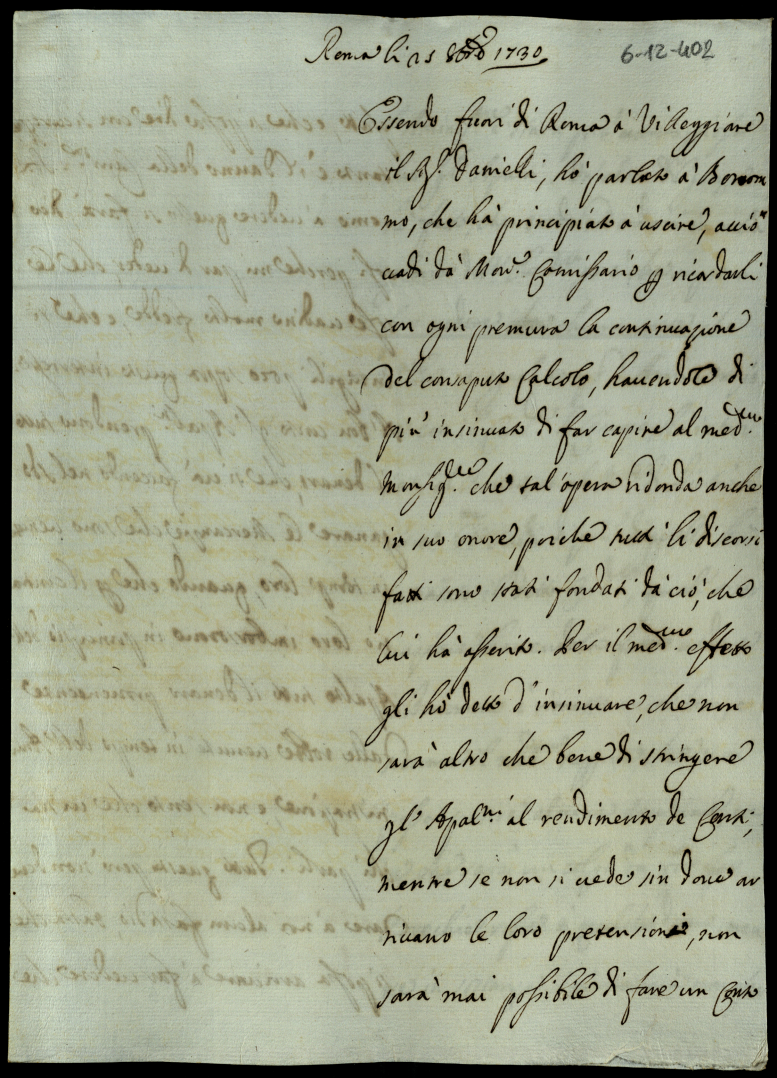 Roma li 25 8bre 1730. 6-12-402
Essendo fuori di Roma à Villeggiare
il Sig.r Danielli, hò parlato à Borrom
mo, che hà principiato à uscire, acciò
uadi dà Mon.r Comissario p ricordarli
con ogni premura la continuazione
del consaputo Calcolo, hauendole di
più insinuato di far capire al med.mo
Monsig.re che tal'opera ridonda anche
in suo onore, poiche tutti li discorsi
fatti sono stati fondati dà ciò, che
lui hà asserito. Per il med.mo effetto
gli hò detto d'insinuare, che non
sarà altro che bene di stringere
gl' Apal.ri al rendimento de Conti,
mentre se non si uede sin doue ar
riuano le loro pretensioni, non
sarà mai possibile di fare un Conto